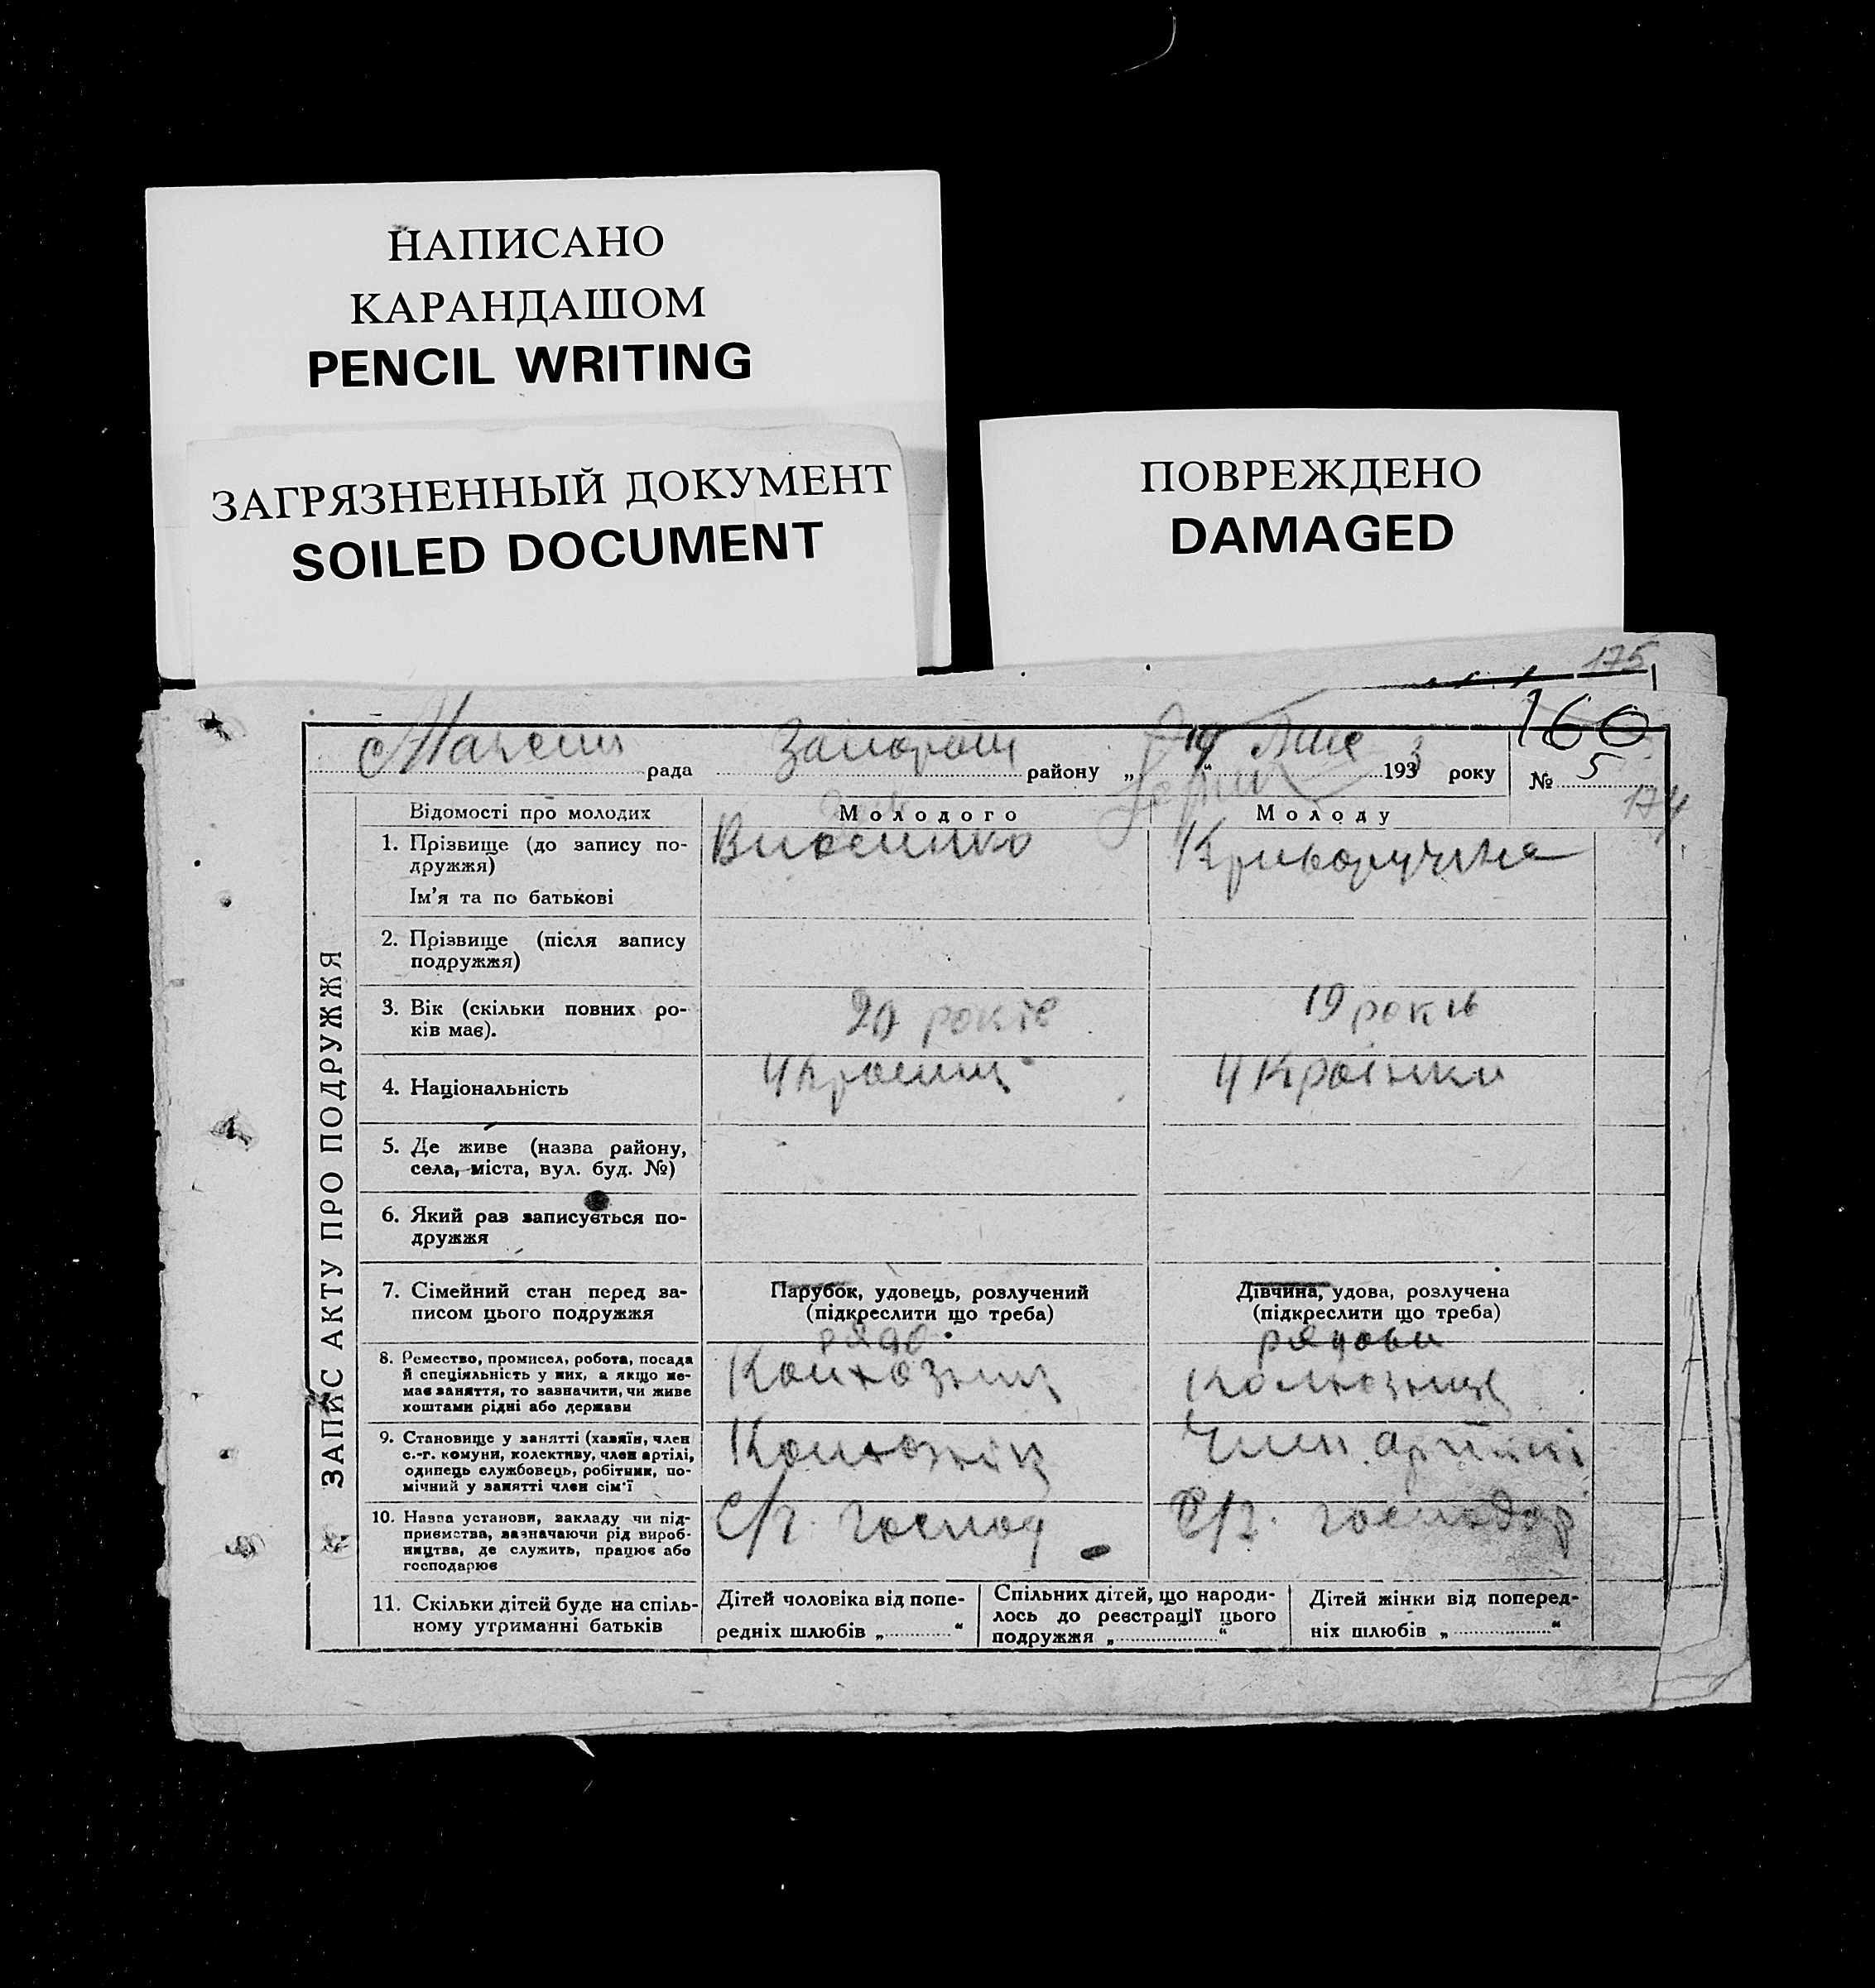 НАПИСАНО
КАРАНДАШОМ
PENCIL WRITING
ЗАГРЯЗНЕННЫЙ ДОКУМЕНТ
SOILED DOCUMENT
ПОВРЕЖДЕНО
DAMAGED
175
160
рада району „ “ 1933 року № 5
174
ЗАПИС АКТУ ПРО ПОДРУЖЖЯ
Відомості про молодих Молодого Молоду
1. Прізвище (до запису по-
дружжя)
Ім'я та по батькові
2. Прізвище (після запису
подружжя)
3. Вік (скільки повних ро-
ків має).
20 років 19 років
4. Національність
5. Де живе (назва району,
села, міста, вул. буд. №)
6. Який раз записується по-
дружжя
7. Сімейний стан перед за-
писом цього подружжя
Парубок, удовець, розлучений
(підкреслити що треба)
Дівчина, удова, розлучена
(підкреслити що треба)
8. Ремество, промисел, робота, посада
й спеціяльність у них, а якщо не-
має заняття, то зазначити, чи живе
коштами рідні або держави
9. Становище у занятті (хазяїн, член
с.-г. комуни, колективу, член артілі,
одинець службовець, робітник, по-
мічний у занятті член сім'ї
10. Назва установи, закладу чи під-
приємства, зазначаючи рід вироб-
ництва, де служить, працює або
господарює
С/г. Господ С/г. господар
11. Скільки дітей буде на спіль-
ному утриманні батьків
Дітей чоловіка від попе-
редніх шлюбів „ “
Спільних дітей, що народи-
лось до реєстрації цього
подружжя „ “
Дітей жінки від поперед-
ніх шлюбів „ “